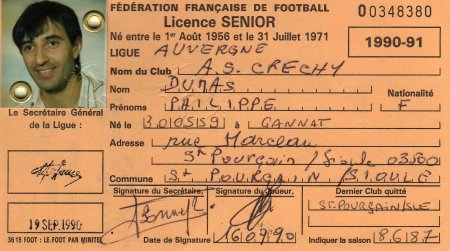 FÉDÉRATION FRANÇAISE DE FOOTBALL
00348380
Licence SENIOR
Né entre le 1er Août 1956 et le 31 Juillet 1971
1990-91
LIGUE AUVERGNE
Nom du Club A.S. CRECHY
Nom DUMAS
Nationalité
Prénoms PHILIPPE F
Le Secrétaire Général
de la Ligue :
Né le 30/05/59 à GANNAT
Adresse rue Marceau
St Pourçain / Sioule 03500
Commune St POURÇAIN / SIOULE
Signature du Secrétaire,
Signature du Joueur,
Dernier Club quitté
ST POURÇAIN/SLE
19 SEP. 1990
3615 FOOT : LE FOOT PAR MINITEL
Date de Signature 16.09.90
Indiquer la saison 86/87